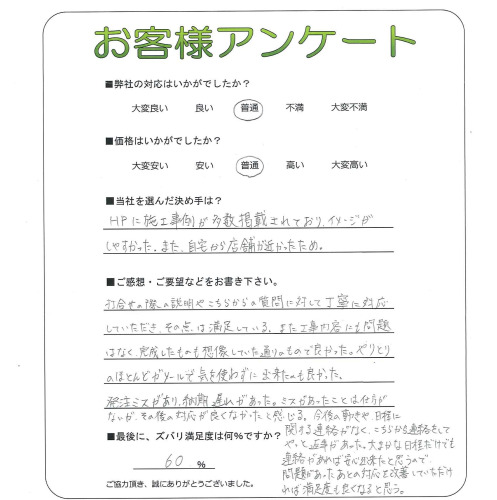 お客様アンケート
■弊社の対応はいかがでしたか？
大変良い 良い 普通 不満 大変不満
■価格はいかがでしたか？
大変安い 安い 普通 高い 大変高い
■当社を選んだ決め手は？
HPに施工事例が多数掲載されており、イメージが
しやすかった。また、自宅から店舗が近かったため。
■ご感想・ご要望などをお書き下さい。
打合せの際の説明やこちらからの質問に対して丁寧に対応
していただき、その点は満足している。また工事内容にも問題
はなく、完成したものも想像していた通りのもので良かった。やりとり
のほとんどがメールで気を使わずに出来たのも良かった。
発注ミスがあり、納期遅れがあった。ミスがあったことは仕方が
ないが、その後の対応が良くなかったと感じる。今後の動きや日程に
関する連絡がなく、こちらから連絡をして
やっと返事があった。大まかな日程だけでも
連絡があれば安心出来たと思うので、
問題があったあとの対応を改善していただけ
れば満足度も良くなると思う。
■最後に、ズバリ満足度は何%ですか？
60 %
ご協力頂き、誠にありがとうございました。